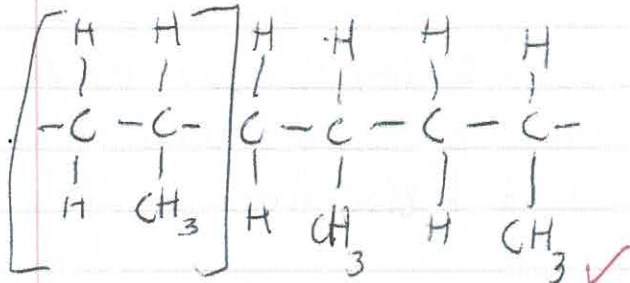 H H H H H H
- C - C - C - C - C - C -
H CH3 H CH3 H CH3